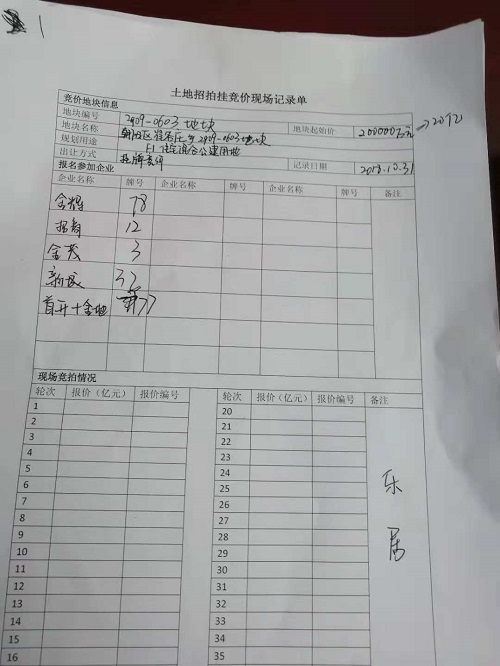 1
土地招拍挂竞价现场记录单
竞价地块信息
地块编号 2909-0603地块 地块起始价 200000万元 → 20亿
地块名称 朝阳区崔各庄乡2909-0603地块
规划用途 F1住宅混合公建用地
出让方式 挂牌 记录日期 2018.10.31
报名参加企业
企业名称 牌号 企业名称 牌号 企业名称 牌号 备注
金辉 78
招商 12
金茂 3
新城 32
首开+金地 77
现场竞拍情况
轮次 报价（亿元） 报价编号 轮次 报价（亿元） 报价编号 备注
1 20
2 21
3 22
4 23
5 24
6 25
7 26
8 27
9 28
10 29
11 30
12 31
13 32
14 33
15 34
16 35
乐
居